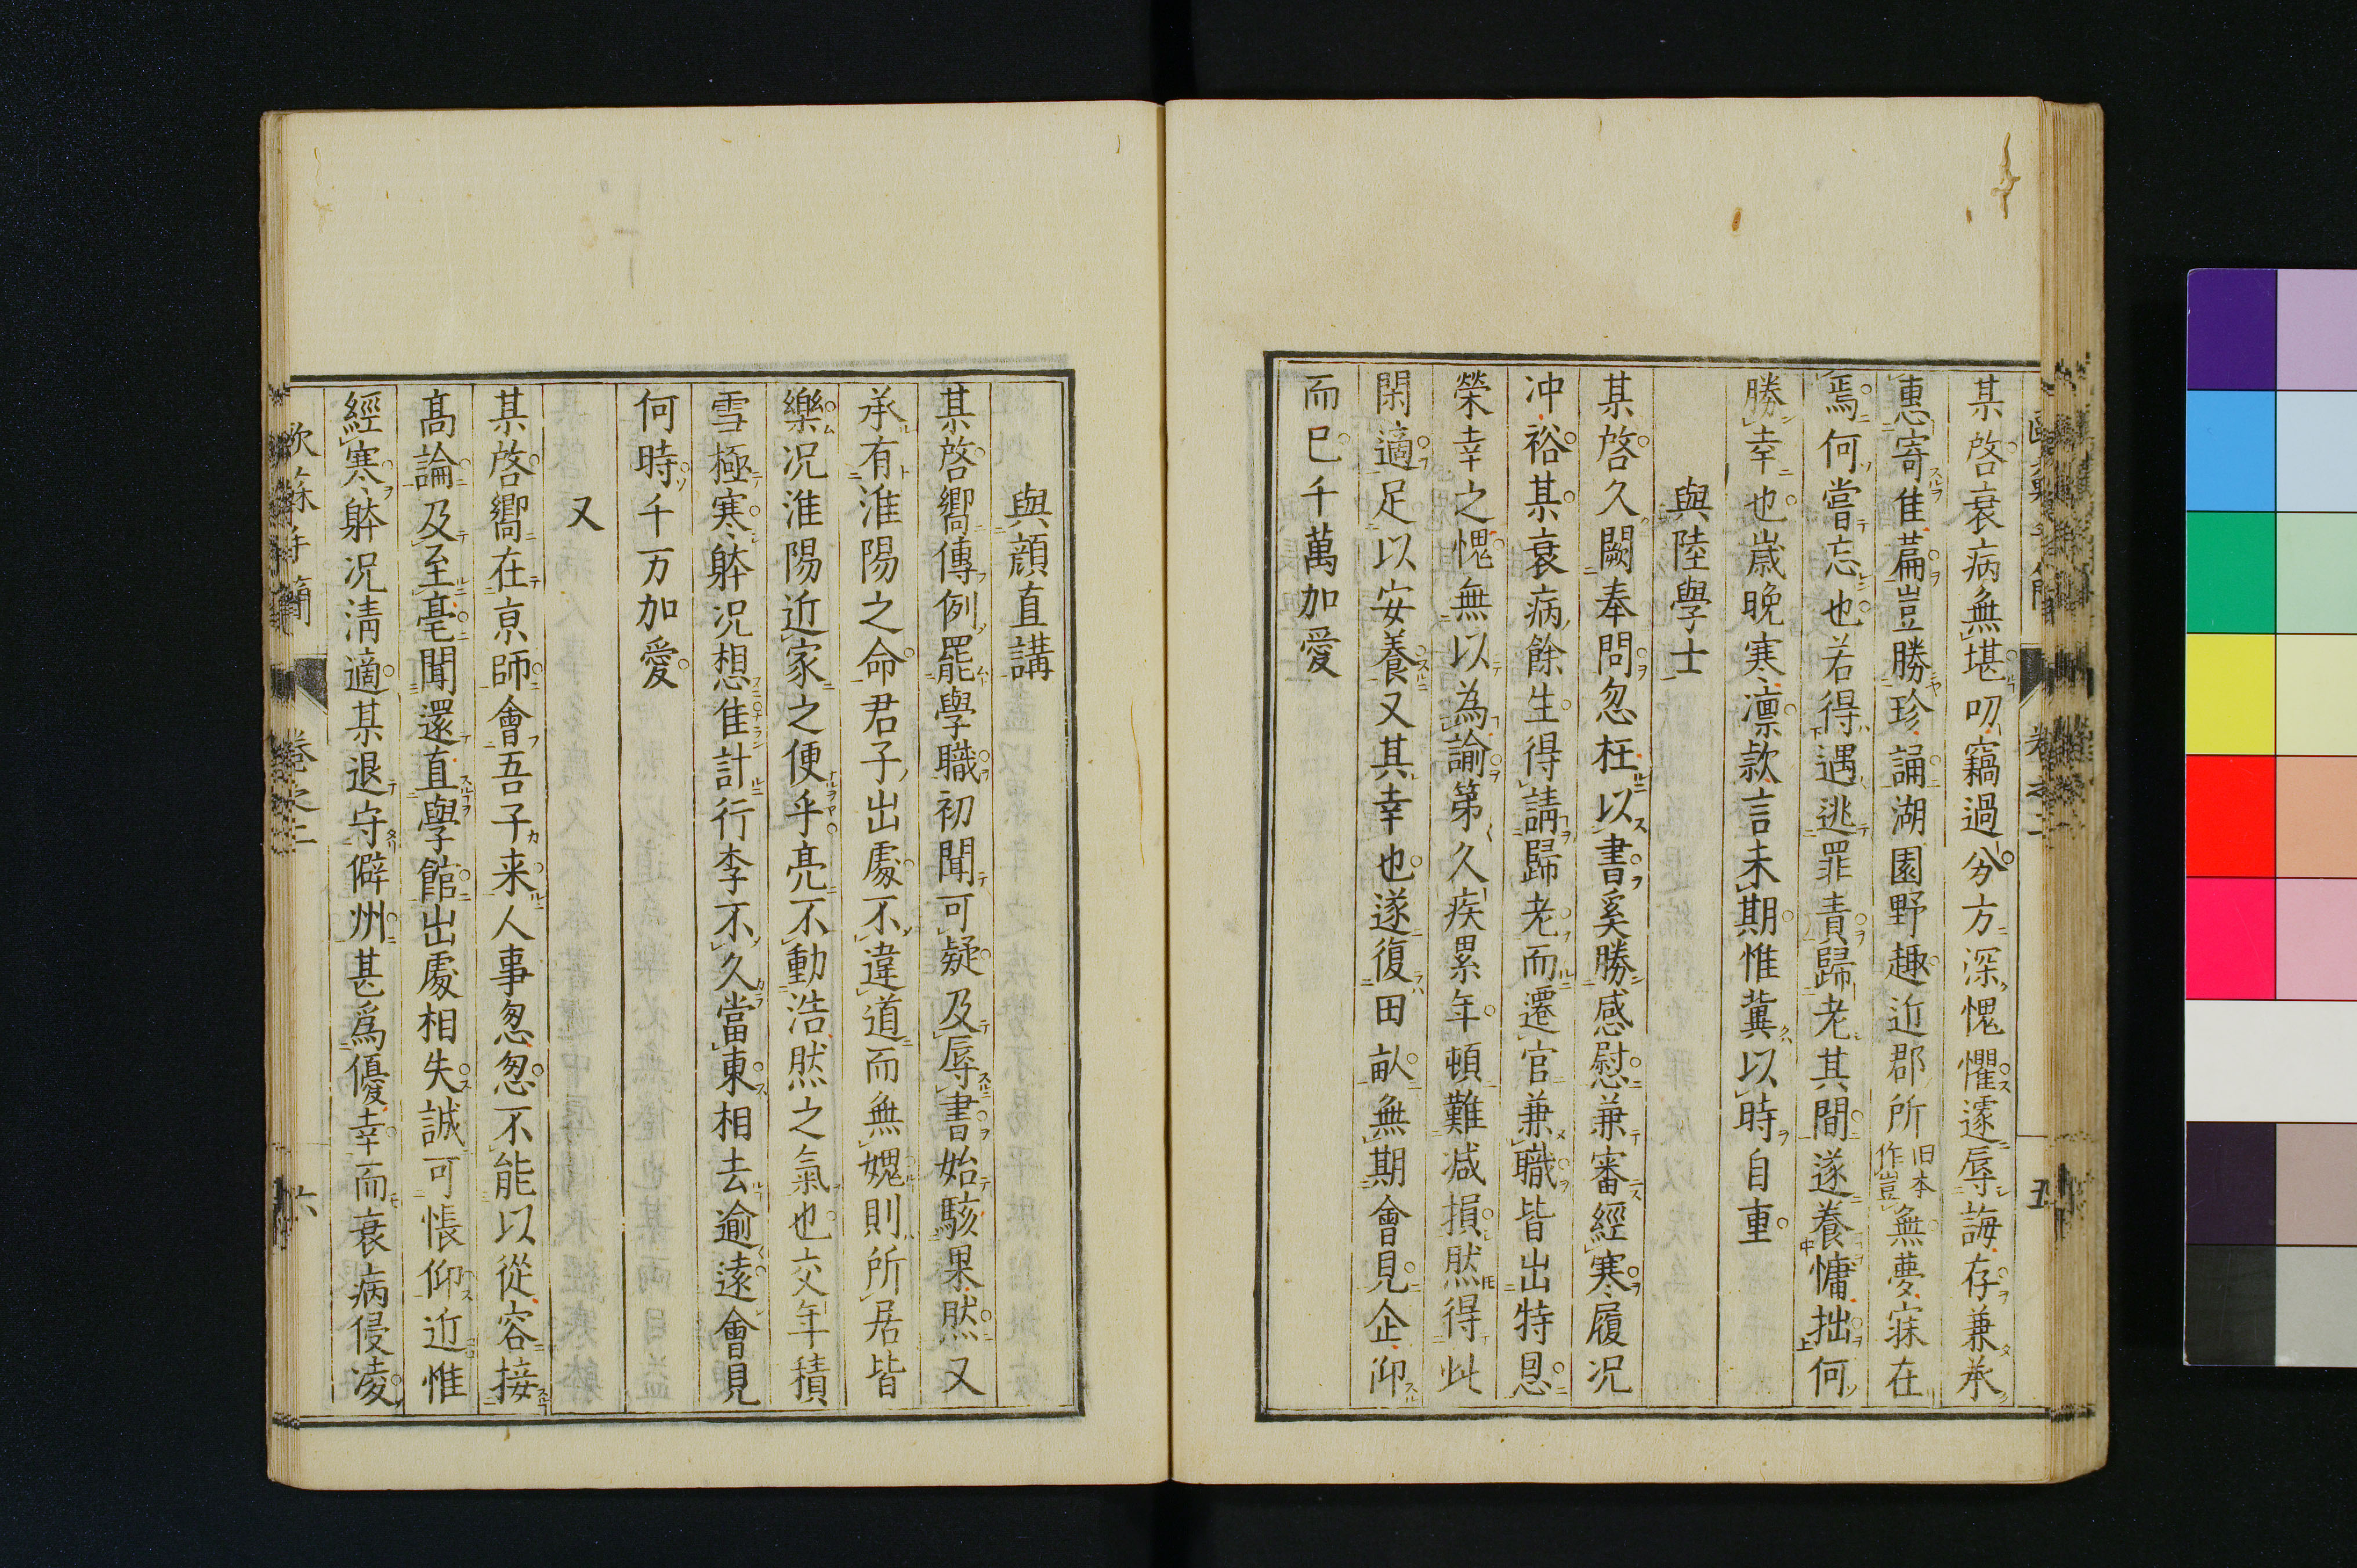 某啓衰病無堪叨竊過分方深愧懼遽辱誨存兼承
惠寄隹萹豈勝珍誦湖園野趣近郡所旧本作豈無夢寐在
焉何嘗忘也若得遇逃罪責歸老其間遂養慵拙何
勝幸也歳晚寒凛款言未期惟冀以時自重
與陸學士
某啓久闕奉問忽枉以書奚勝感慰兼審經寒履况
冲裕某衰病餘生得請歸老而遷官兼職皆出特恩
榮幸之愧無以為諭第久疾累年頓難减損然得此
閑適足以安養又其幸也遂復田畝無期會見企仰
而已千萬加愛
與顔直講
某啓嚮傳例罷學職初聞可疑及辱書始駭果然又
承有淮陽之命君子出處不違道而無媿則所居皆
樂况淮陽近家之便乎亮不動浩然之氣也交年積
雪極寒躰况想隹計行李不久當東相去逾遠會見
何時千万加愛
又
某啓嚮在京師會吾子来人事忽忽不能以從容接
高論及至亳聞還直學館出處相失誠可悵仰近惟
經寒躰况清適某退守僻州甚爲優幸而衰病侵凌
歐蘇手簡 卷之二 六